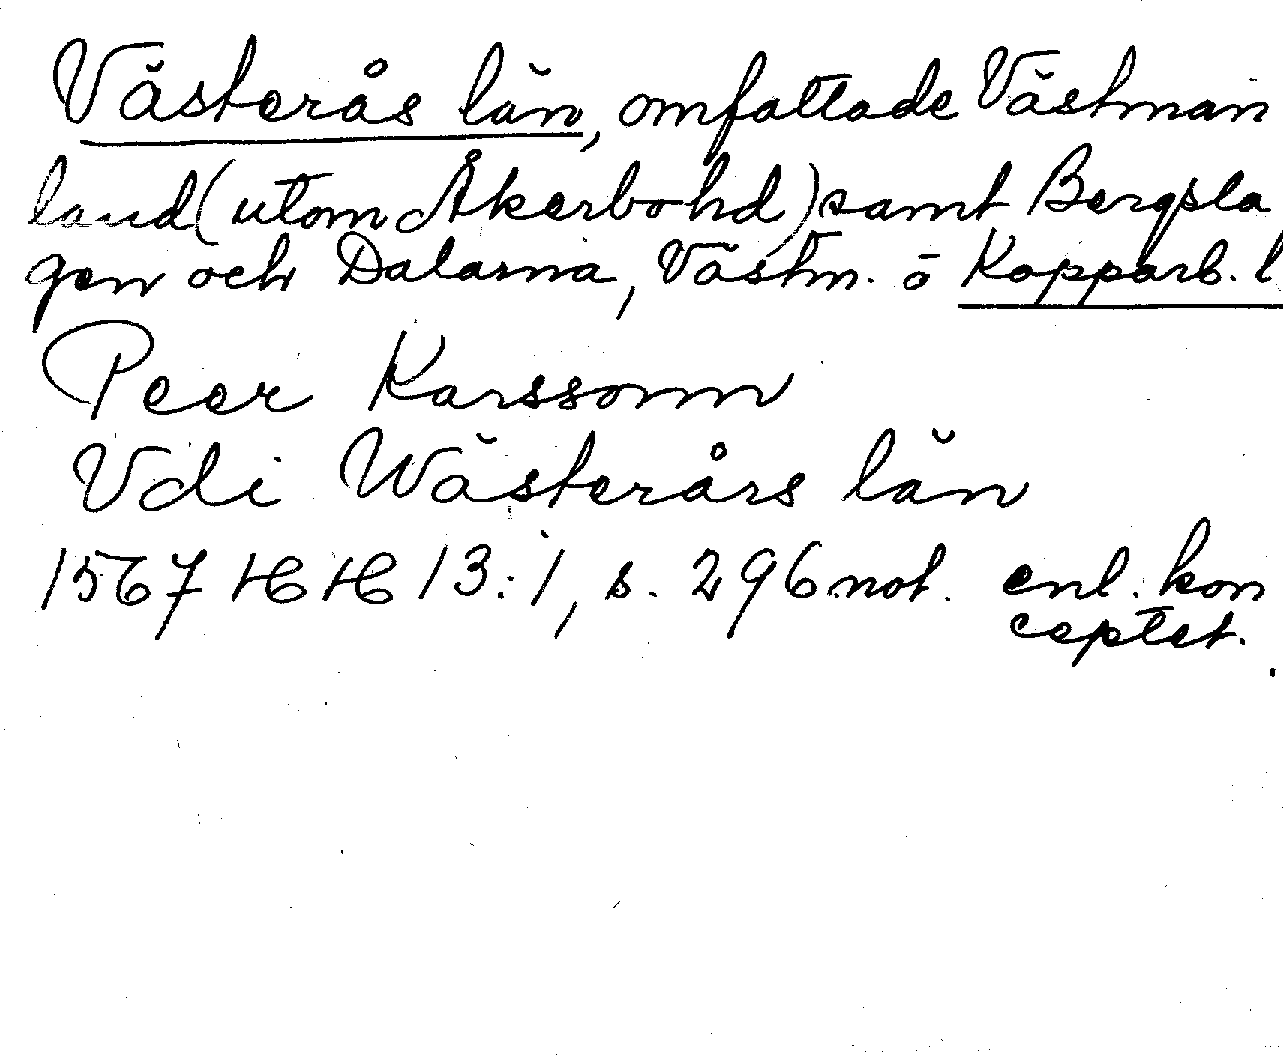 Västerås län, omfattade Västman
land (utom Åkerbo hd) samt Bergsla
gen och Dalarna, Västm. o Kopparb. l
Peer Karssonn
Vdi Wästerårs län
1567 HH 13:1, s. 296 not. enl. kon
ceptet.